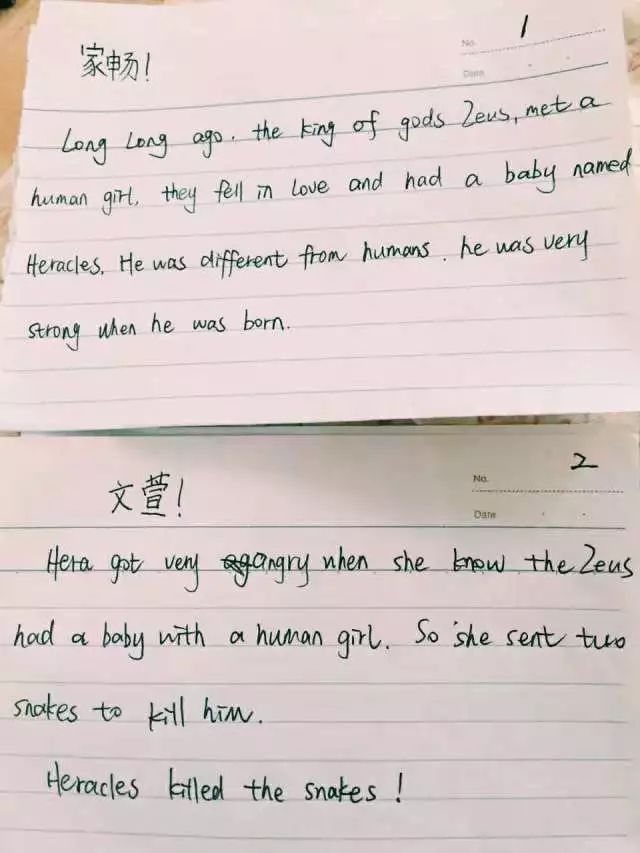 家畅!
No. 1
Date
Long Long ago. the king of gods Zeus, met a
human girl, they fell in love and had a baby named
Heracles. He was different from humans. he was very
strong when he was born.
文萱!
No. 2
Date
Hera got very angry when she know the Zeus
had a baby with a human girl. So she sent two
snakes to kill him.
Heracles killed the snakes!